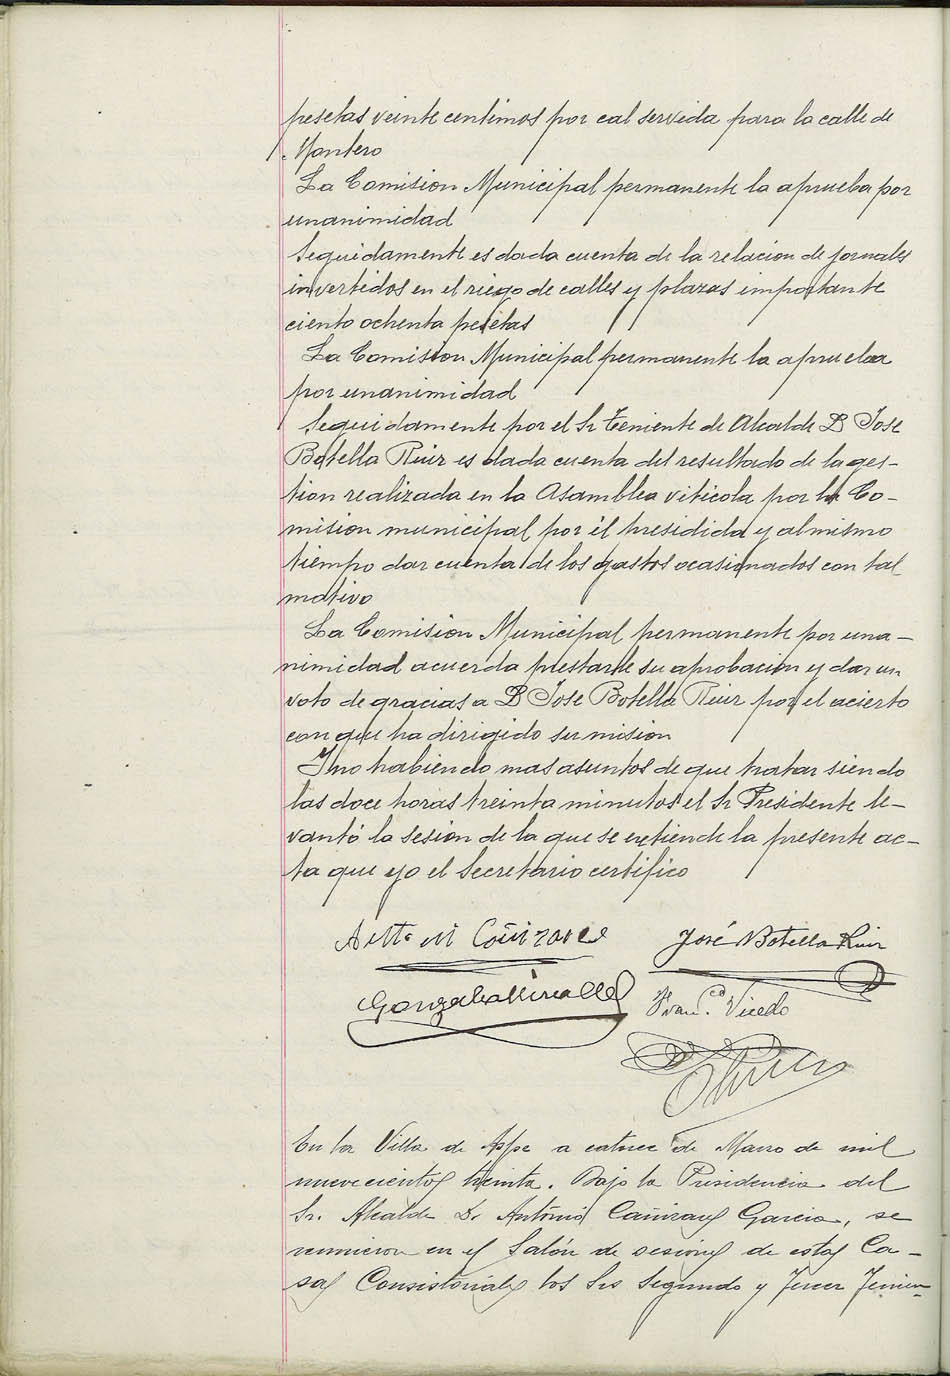 pesetas veinte centimos por cal servida para la calle de
Montero
La Comision Municipal permanente la aprueba por
unanimidad
Seguidamente es dada cuenta de la relacion de jornales
invertidos en el riego de calles y plazas importante
ciento ochenta pesetas
La Comision Municipal permanente la aprueba
por unanimidad
Seguidamente por el Sr Teniente de Alcalde D Jose
Botella Ruiz es dada cuenta del resultado de la ges-
tion realizada en la Asamblea viticola por la Co-
mision municipal por él presidida y al mismo
tiempo dar cuenta de los gastos ocasionados con tal
motivo
La Comision Municipal permanente por una-
nimidad acuerda prestarle su aprobacion y dar un
voto de gracias a D Jose Botella Ruiz por el acierto
con que ha dirigido su mision
Y no habiendo mas asuntos de que tratar siendo
las doce horas treinta minutos el Sr Presidente le-
vantó la sesion de la que se extiende la presente ac-
ta que yo el Secretario certifico
José Botella Ruiz
Franco. Vicedo
En la Villa de Aspe a catorce de Marzo de mil
nuevecientos treinta. Bajo la Presidencia del
Sr. Alcalde D. Antonio Cañizares Garcia, se
reunieron en el Salón de sesiones de estas Ca-
sas Consistoriales los Srs Segundo y Tercer Tenien-